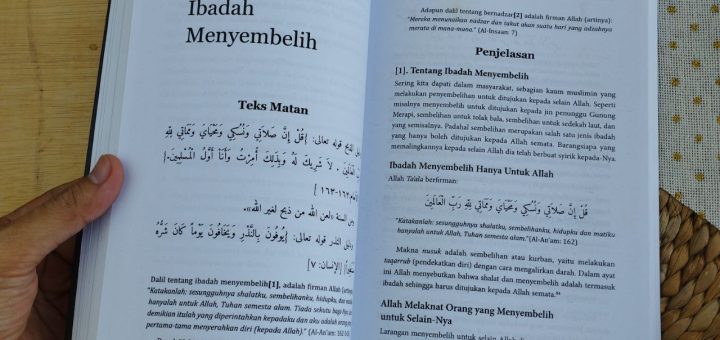 Ibadah
Menyembelih
Teks Matan
الذبح قوله تعالى: {قُلْ إِنَّ صَلَاتِي وَنُسُكِي وَمَحْيَايَ وَمَمَاتِي لِلَّهِ
لَا شَرِيكَ لَهُ وَبِذَلِكَ أُمِرْتُ وَأَنَا أَوَّلُ الْمُسْلِمِينَ}
١٦٢-١٦٣]
السنة: «لعن الله من ذبح لغير الله».
ودليل النذر قوله تعالى: {يُوفُونَ بِالنَّذْرِ وَيَخَافُونَ يَوْماً كَانَ شَرُّهُ
[الإنسان: ٧]
Dalil tentang ibadah menyembelih[1], adalah firman Allah (artinya):
"Katakanlah: sesungguhnya shalatku, sembelihanku, hidupku, dan
hanyalah untuk Allah, Tuhan semesta alam. Tiada sekutu bagi
demikian itulah yang diperintahkan kepadaku dan aku adalah orang
pertama-tama menyerahkan diri (kepada Allah)." (Al-An'am:
Adapun dalil tentang bernadzar[2] adalah firman Allah (artinya):
"Mereka menunaikan nadzar dan takut akan suatu hari yang adzabnya
merata di mana-mana." (Al-Insaan: 7)
Penjelasan
[1]. Tentang Ibadah Menyembelih
Sering kita dapati dalam masyarakat, sebagian kaum muslimin yang
melakukan penyembelihan untuk ditujukan kepada selain Allah. Seperti
misalnya menyembelih untuk ditujukan kepada jin penunggu Gunung
Merapi, sembelihan untuk tolak bala, sembelihan untuk sedekah laut, dan
yang semisalnya. Padahal sembelihan merupakan salah satu jenis ibadah
yang hanya boleh ditujukan kepada Allah semata. Barangsiapa yang
memalingkannya kepada selain Allah dia telah berbuat syirik kepada-Nya.
Ibadah Menyembelih Hanya Untuk Allah
Allah Ta'ala berfirman:
قُلْ إِنَّ صَلَاتِي وَنُسُكِي وَمَحْيَايَ وَمَمَاتِي لِلَّهِ رَبِّ الْعَالَمِينَ
"Katakanlah: sesungguhnya shalatku, sembelihanku, hidupku dan matiku
hanyalah untuk Allah, Tuhan semesta alam."(Al-An'am: 162)
Makna nusuk adalah sembelihan atau kurban, yaitu melakukan
taqarrub (pendekatan diri) dengan cara mengalirkan darah. Dalam ayat
ini Allah menyebutkan bahwa shalat dan menyembelih adalah termasuk
ibadah sehingga harus ditujukan kepada Allah semata.
Allah Melaknat Orang yang Menyembelih
untuk Selain-Nya
Larangan menyembelih untuk selain Allah